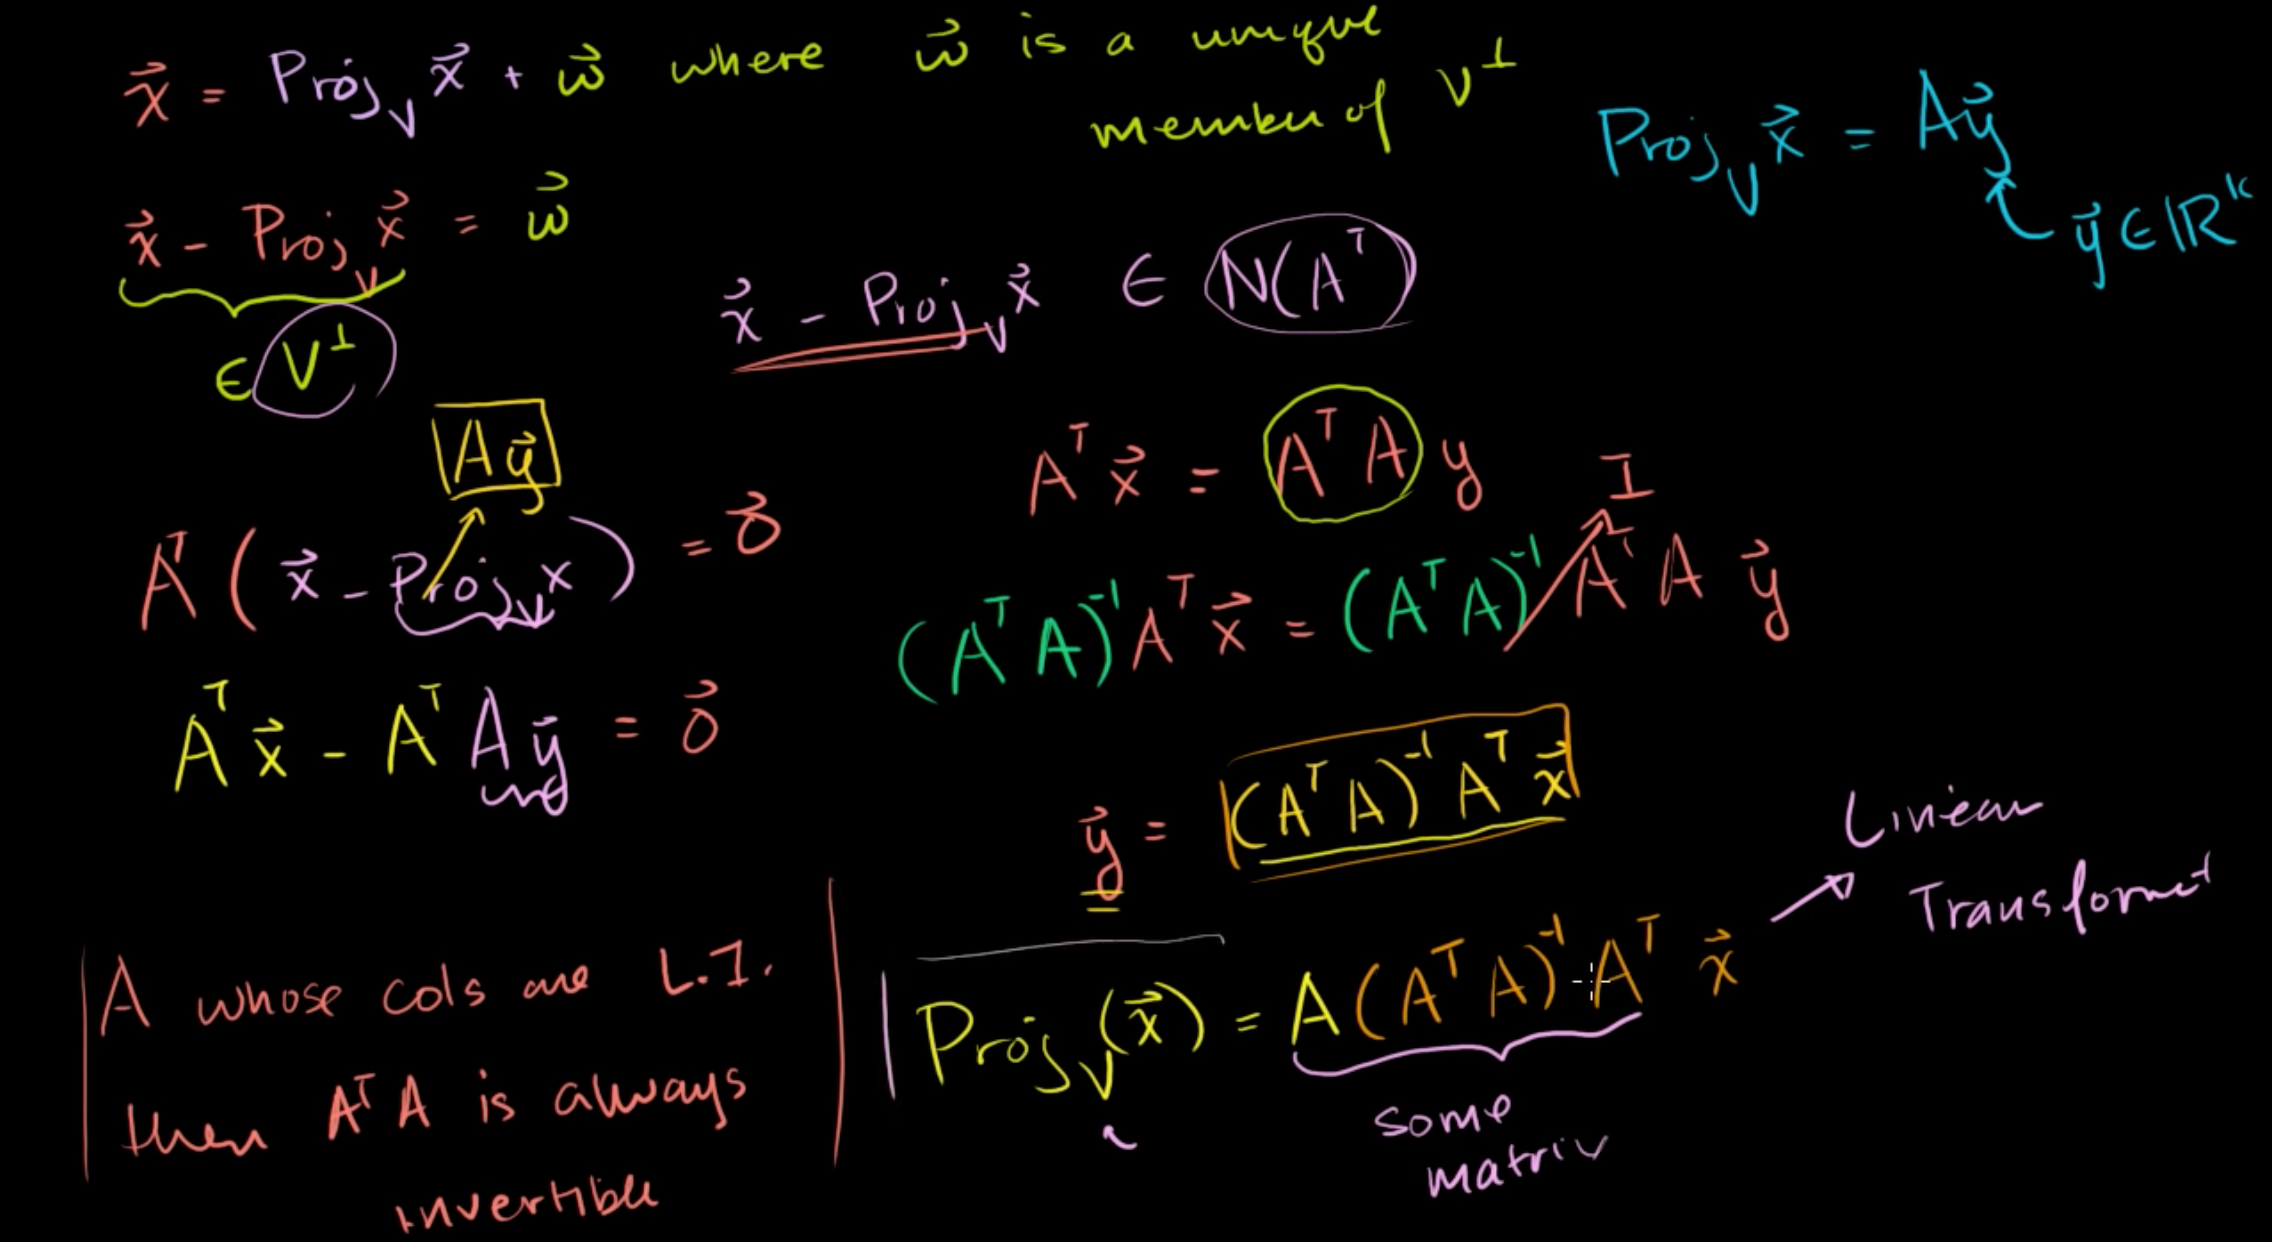 x⃗ = Proj_V x⃗ + w⃗ where w⃗ is a unique
member of V^⊥
Proj_V x⃗ = Ay⃗
y⃗ ∈ ℝ^k
x⃗ - Proj_V x⃗ = w⃗
∈ V^⊥
x⃗ - Proj_V x⃗ ∈ N(A^T)
Ay⃗
A^T (x⃗ - Proj_V x) = 0⃗
A^T x⃗ - A^T Ay⃗ = 0⃗
A^T x⃗ = A^T A y
I
(A^T A)^-1 A^T x⃗ = (A^T A)^-1 A^T A y⃗
y⃗ = (A^T A)^-1 A^T x⃗
A whose cols are L.I.
then A^T A is always
invertible
Proj_V (x⃗) = A(A^T A)^-1 A^T x⃗
some
matrix
Linear
Transformat